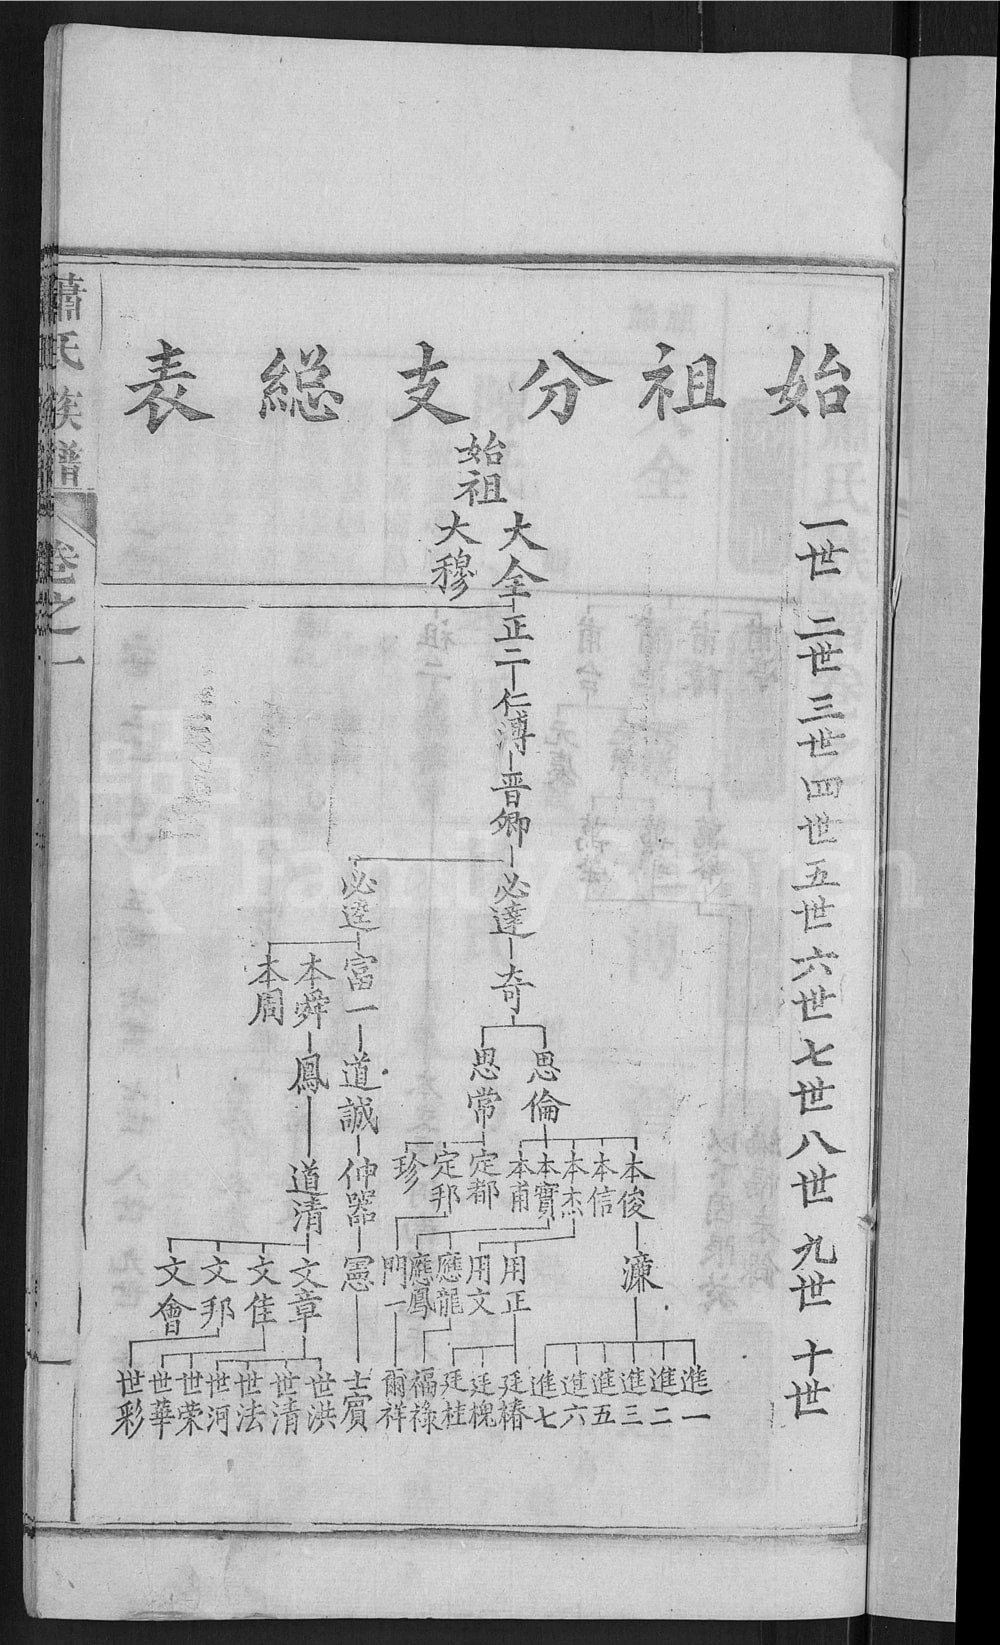 始祖分支総表
一世
二世
三世
四世
五世
六世
七世
八世
九世
十世
始祖
大全
大穆
正二
仁溥
晋卿
必達
必逵
奇
富一
本舜
本周
思倫
思常
道誠
鳳
本俊
本信
本杰
本實
本甫
定都
定邦
珍
伸器
道清
濂
用正
用文
應龍
應鳳
門一
憲
文章
文佳
文邦
文會
進一
進二
進三
進五
進六
進七
廷椿
廷槐
廷桂
福祿
爾祥
士賔
世洪
世清
世法
世河
世荣
世華
世彩
蕭氏族譜
卷之一
一